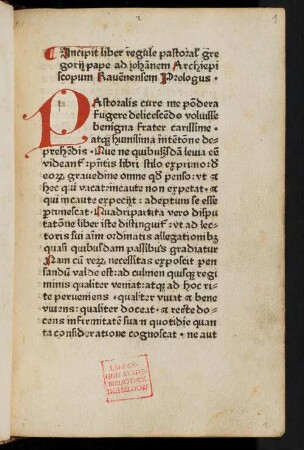 2
1
Incipit liber regule pastoral' gre
gorij pape ad johānem Archiepi
scopum Rauēnensem Prologus ·
PAstoralis cure me pōdera
fugere delitescēdo voluisse
benigna frater carissime ·
atqȝ humilima intētōne de
prehēdis · Que ne quibusdā leuia eē
videant᷑ pn̄tis libri stilo exprimo · ðe
eorȝ grauedine omne qd̄ penso : vt ⁊
hec qui vacat : incaute non expetat · ⁊
qui incaute expeciit : adeptum se esse
ptimescat · Quadripartita vero dispu
tatōne liber iste distinguit᷑ · vt ad lec
toris sui aīm ordinatis allegationibȝ
quasi quibusdam passibus gradiatur
Nam cū reȝ necessitas exposcit pen
sandū valde est : ad culmen quisqȝ regi
minis qualiter veniat : atqȝ ad hoc ri
te perueniens · qualiter viuat ⁊ bene
viuens : qualiter doceat · ⁊ recte do
cens infirmitatē sua᷑ quotidie quan
ta consideratione cognoscat · ne aut
LANDES-
UND STADT-
BIBLIOTHEK
DÜSSELDORF
1